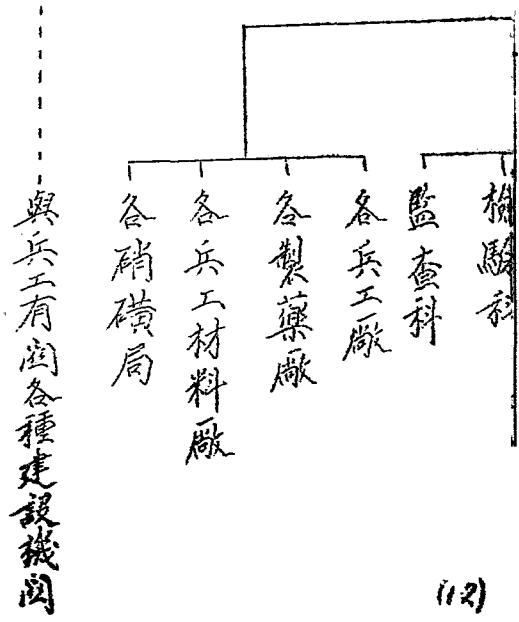 檢驗科
監查科
各兵工廠
各製藥廠
各兵工材料廠
各硝磺局
與兵工有関各種建設機関
(12)